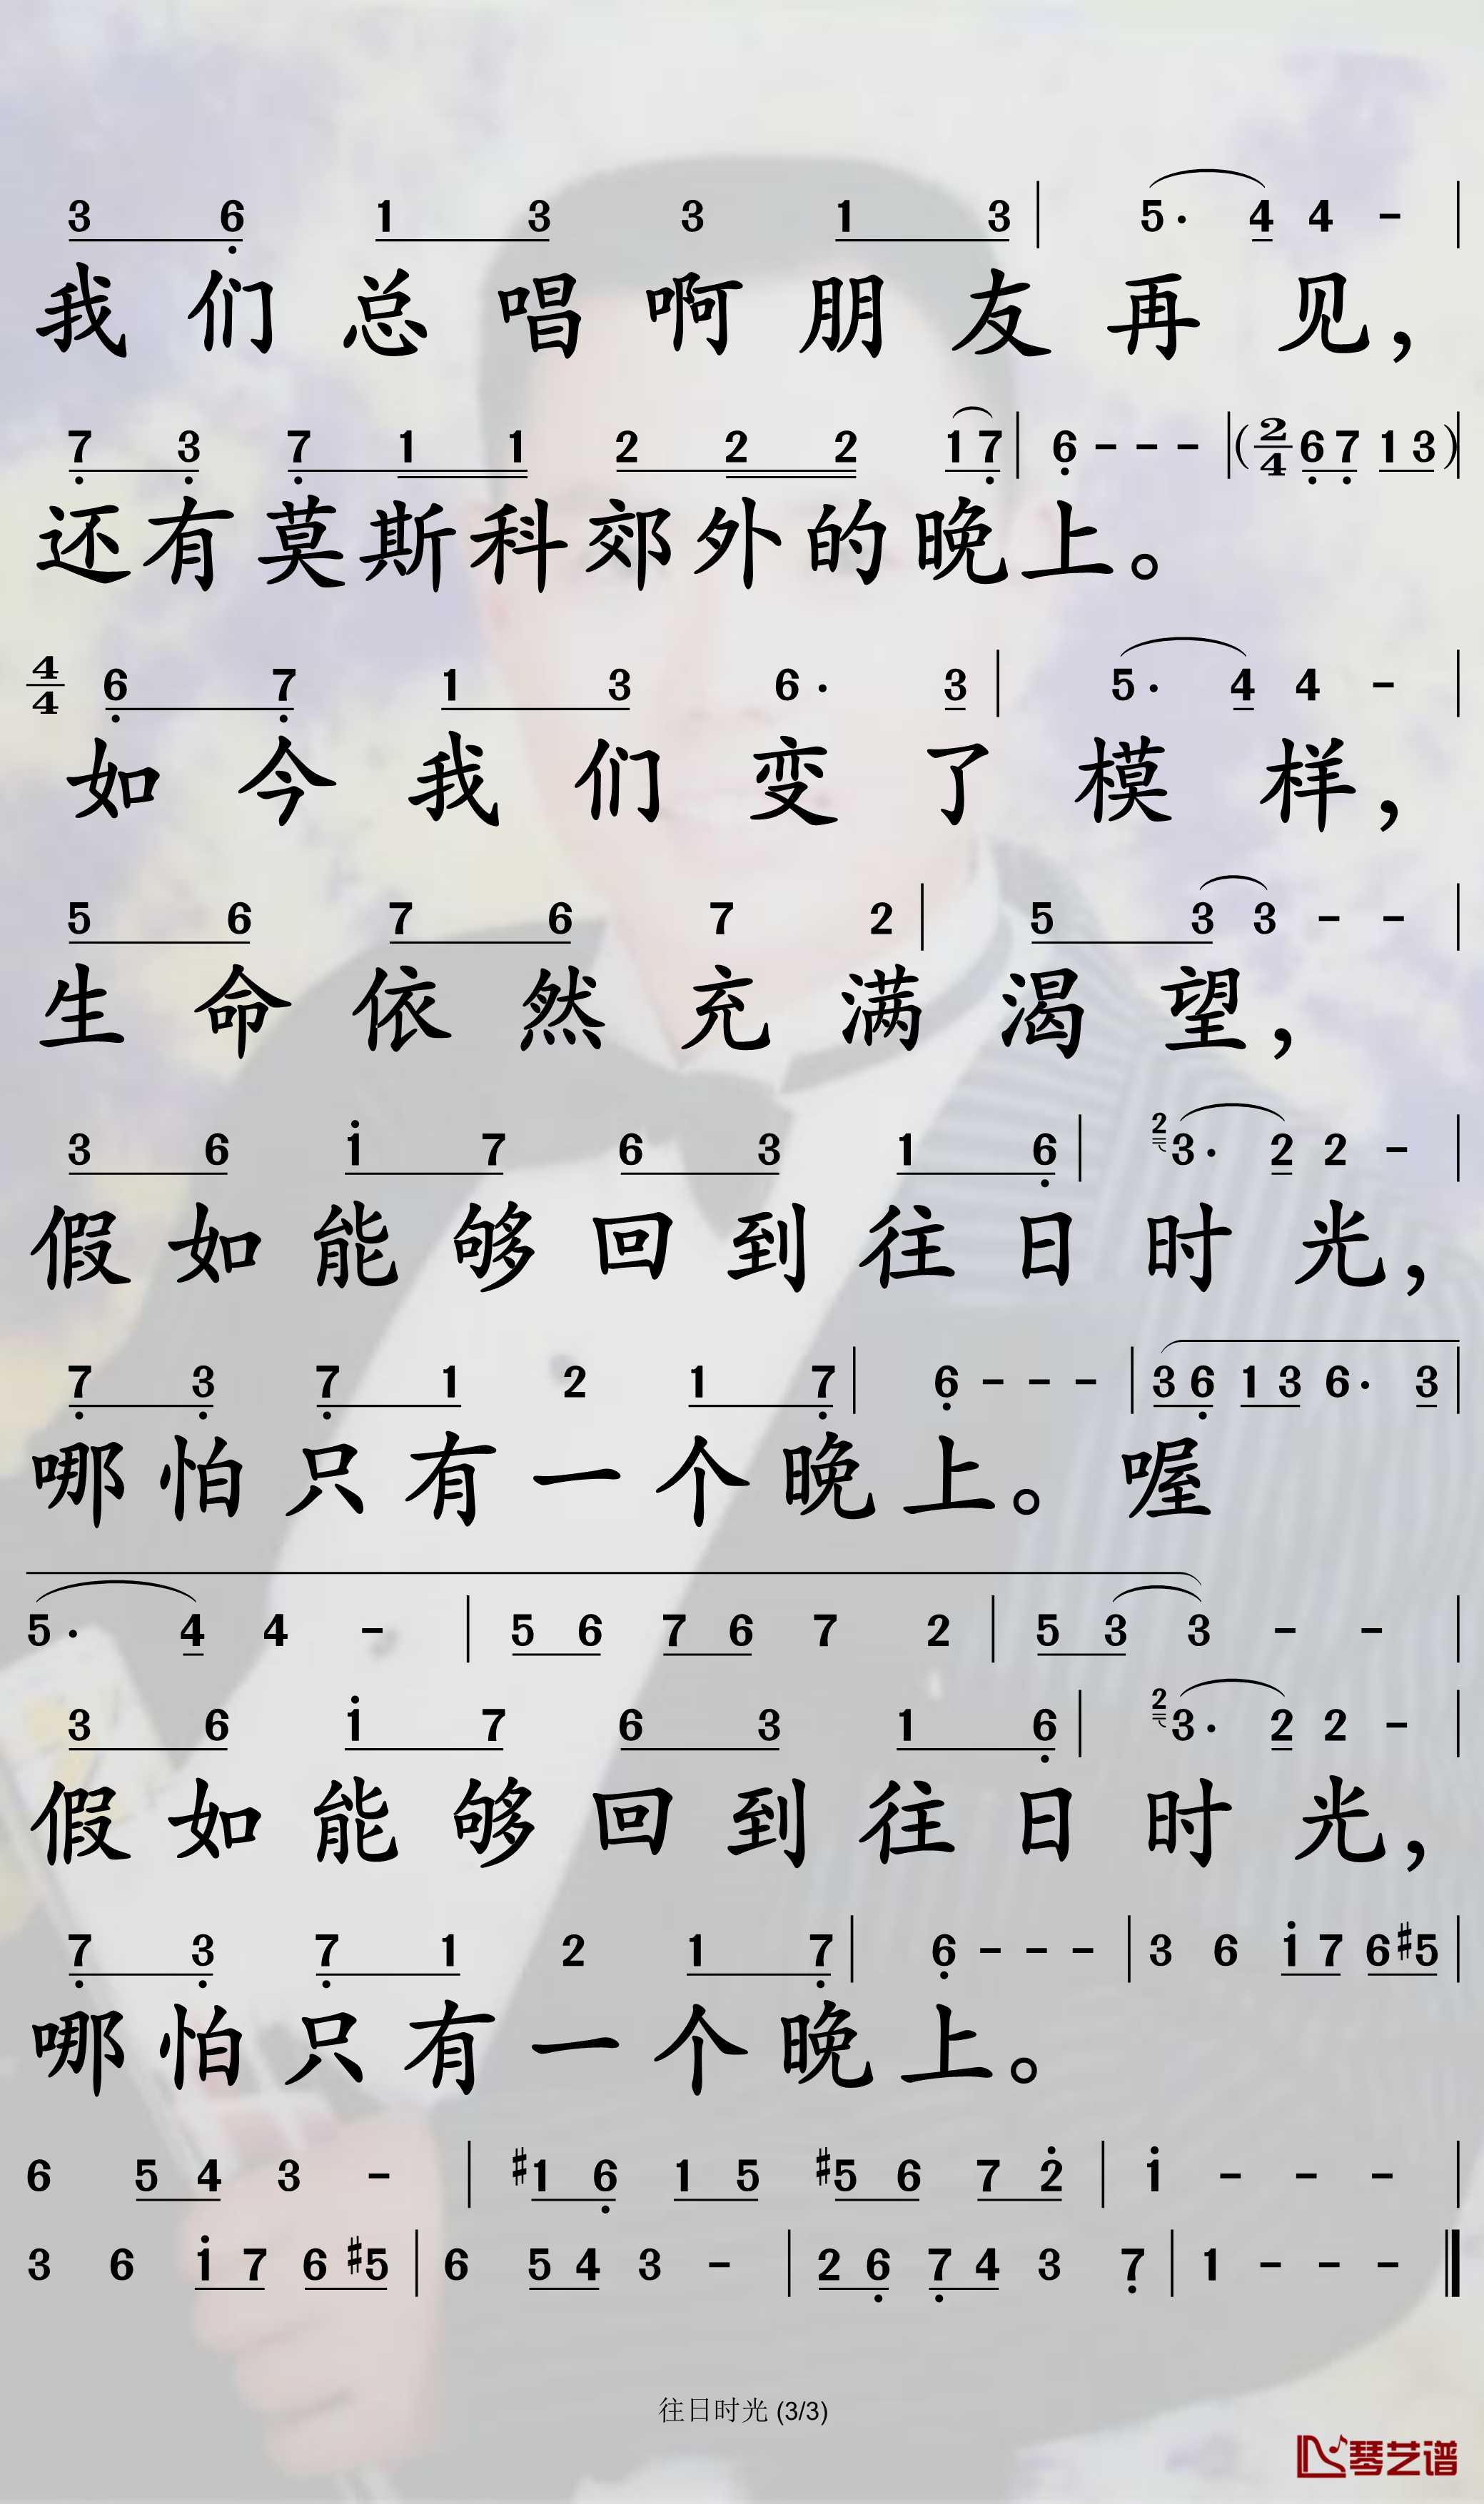 3 6 1 3 3 1 3 | 5· 4 4 - |
我们总唱啊朋友再见，
7 3 7 1 1 2 2 2 1 7 | 6 - - - | (2/4 6 7 1 3) |
还有莫斯科郊外的晚上。
4/4 6 7 1 3 6· 3 | 5· 4 4 - |
如今我们变了模样，
5 6 7 6 7 2 | 5 3 3 - - |
生命依然充满渴望，
3 6 1 7 6 3 1 6 | 2 3· 2 2 - |
假如能够回到往日时光，
7 3 7 1 2 1 7 | 6 - - - | 3 6 1 3 6· 3 |
哪怕只有一个晚上。喔
5· 4 4 - | 5 6 7 6 7 2 | 5 3 3 - - |
3 6 1 7 6 3 1 6 | 2 3· 2 2 - |
假如能够回到往日时光，
7 3 7 1 2 1 7 | 6 - - - | 3 6 1 7 6 #5 |
哪怕只有一个晚上。
6 5 4 3 - | #1 6 1 5 #5 6 7 2 | 1 - - - |
3 6 1 7 6 #5 | 6 5 4 3 - | 2 6 7 4 3 7 | 1 - - - ‖
往日时光 (3/3)
琴艺谱